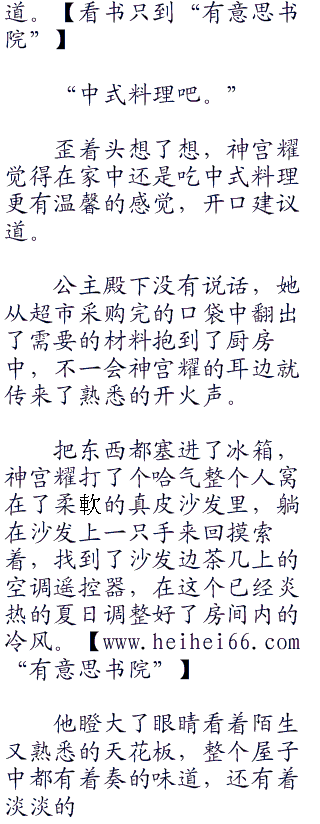 道。【看书只到“有意思书
院”】
“中式料理吧。”
歪着头想了想，神宫耀
觉得在家中还是吃中式料理
更有温馨的感觉，开口建议
道。
公主殿下没有说话，她
从超市采购完的口袋中翻出
了需要的材料抱到了厨房
中，不一会神宫耀的耳边就
传来了熟悉的开火声。
把东西都塞进了冰箱，
神宫耀打了个哈气整个人窝
在了柔軟的真皮沙发里，躺
在沙发上一只手来回摸索
着，找到了沙发边茶几上的
空调遥控器，在这个已经炎
热的夏日调整好了房间内的
冷风。【www.heihei66.com
“有意思书院”】
他瞪大了眼睛看着陌生
又熟悉的天花板，整个屋子
中都有着奏的味道，还有着
淡淡的